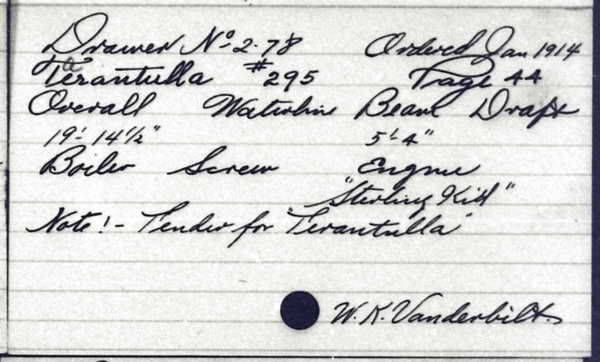 Drawer No 2-78 Ordered Jan 1914
Terantulla #295 Page 44
a
Overall Waterline Beam Draft
19'-1 4 1/2" 5'-4"
Boiler Screw Engine
"Sterling Kid"
Note!- Tender for "Terantulla"
W.K. Vanderbilt.